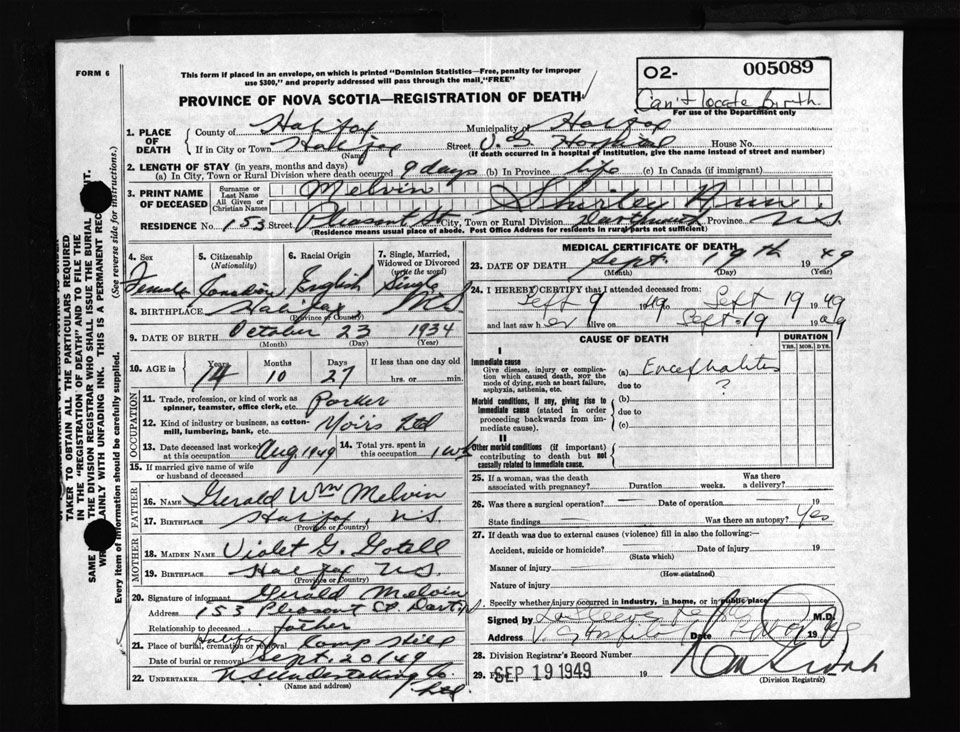 FORM 6
This form if placed in an envelope, on which is printed "Dominion Statistics—Free, penalty for improper
use $300," and properly addressed will pass through the mail, "FREE"
PROVINCE OF NOVA SCOTIA—REGISTRATION OF DEATH
O2- 005089
Can't locate birth.
For use of the Department only
1. PLACE OF DEATH
County of Halifax Municipality of Halifax
If in City or Town Halifax Street V. G. Hospital House No.
(Name) (If death occurred in a hospital or institution, give the name instead of street and number)
2. LENGTH OF STAY (in years, months and days)
(a) In City, Town or Rural Division where death occurred 9 days (b) In Province life (c) In Canada (if immigrant)
3. PRINT NAME OF DECEASED
Surname or Last Name Melvin
All Given or Christian Names Shirley Ann
RESIDENCE No. 153 Street Pleasant St. City, Town or Rural Division Dartmouth Province N.S.
(Residence means usual place of abode. Post Office Address for residents in rural parts not sufficient)
4. Sex 5. Citizenship (Nationality) 6. Racial Origin 7. Single, Married, Widowed or Divorced (write the word)
Female Canadian English Single
8. BIRTHPLACE Halifax N.S.
(Province or Country)
9. DATE OF BIRTH October 23 1934
(Month) (Day) (Year)
10. AGE in Years Months Days If less than one day old
14 10 27 hrs. or min.
OCCUPATION
11. Trade, profession, or kind of work as
spinner, teamster, office clerk, etc. Packer
12. Kind of industry or business, as cotton-
mill, lumbering, bank, etc. Moirs Ltd
13. Date deceased last worked at this occupation Aug 1949 14. Total yrs. spent in this occupation
15. If married give name of wife
or husband of deceased
FATHER
16. NAME Gerald Wm Melvin
17. BIRTHPLACE Halifax, N.S.
(Province or Country)
MOTHER
18. MAIDEN NAME Violet G. Gotell
19. BIRTHPLACE Halifax N.S.
(Province or Country)
20. Signature of informant Gerald Melvin
Address 153 Pleasant St
Relationship to deceased father
21. Place of burial, cremation or removal Halifax Camp Hill
Date of burial or removal Sept. 20/49
22. UNDERTAKER N S Undertaking Co. Ltd.
(Name and address)
MEDICAL CERTIFICATE OF DEATH
23. DATE OF DEATH Sept. 19th 1949
(Month) (Day) (Year)
24. I HEREBY CERTIFY that I attended deceased from:
Sept 9 1949 Sept 19 1949
and last saw her alive on Sept. 19 1949
CAUSE OF DEATH DURATION
YRS. MOS. DYS.
I
Immediate cause
Give disease, injury or complica-
tion which caused death, NOT the
mode of dying, such as heart failure,
asphyxia, asthenia, etc.
(a) Encephalitis
due to ?
Morbid conditions, if any, giving rise to
immediate cause (stated in order
proceeding backwards from im-
mediate cause).
(b)
due to
(c)
II
Other morbid conditions (if important)
contributing to death but not
causally related to immediate cause.
25. If a woman, was the death
associated with pregnancy? Duration weeks. Was there a delivery?
26. Was there a surgical operation? Date of operation 19
State findings Was there an autopsy? Yes
27. If death was due to external causes (violence) fill in also the following:—
Accident, suicide or homicide? Date of injury 19
(State which)
Manner of injury
(How sustained)
Nature of injury
Specify whether injury occurred in industry, in home, or in public place
Signed by M.D.
Address Date
28. Division Registrar's Record Number
29. SEP 19 1949 19
(Division Registrar)
TAKER TO OBTAIN ALL THE PARTICULARS REQUIRED
IN THE "REGISTRATION OF DEATH" AND TO FILE THE
THE DIVISION REGISTRAR WHO SHALL ISSUE THE BURIAL
LAINLY WITH UNFADING INK. THIS IS A PERMANENT REC
Every item of information should be carefully supplied. (See reverse side for instructions.)